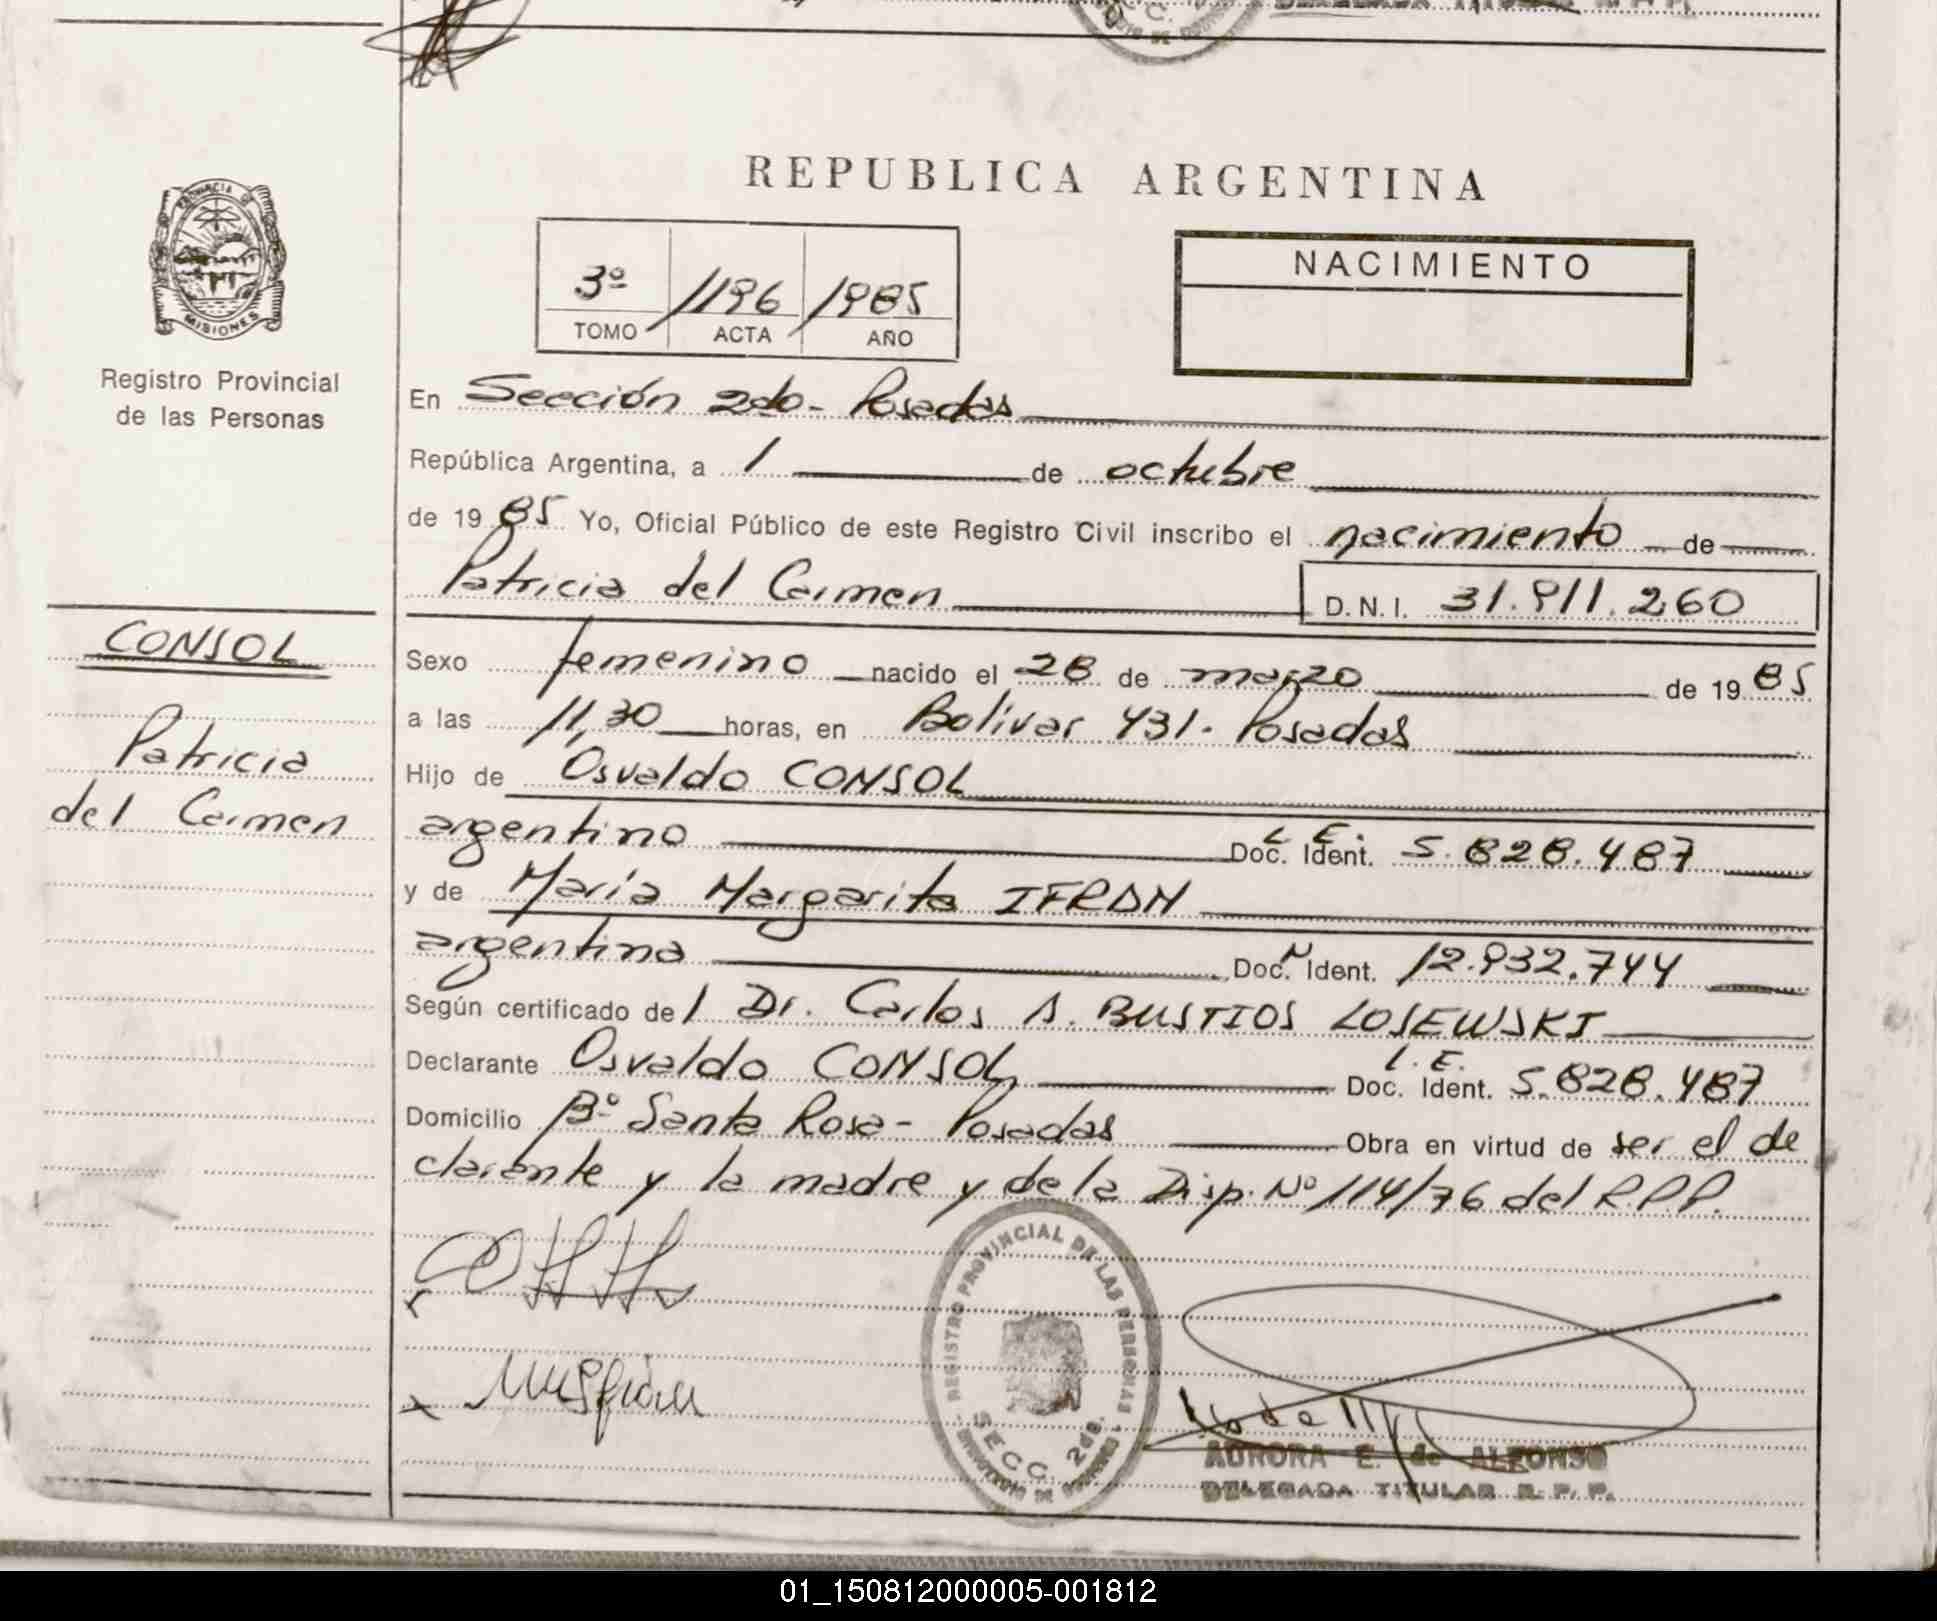 REPUBLICA ARGENTINA
PROVINCIA DE
MISIONES
Registro Provincial
de las Personas
3º 1196 1985
TOMO ACTA AÑO
NACIMIENTO
En Sección 2da- Posadas
República Argentina, a 1 de octubre
de 1985 Yo, Oficial Público de este Registro Civil inscribo el nacimiento de
Patricia del Carmen D.N.I. 31.911.260
CONSOL
Patricia
del Carmen
Sexo femenino nacido el 28 de marzo de 1985
a las 11,30 horas, en Bolívar 431. Posadas
Hijo de Osvaldo CONSOL
argentino Doc. Ident. L.E. 5.828.487
y de María Margarita IFRAN
argentina Doc. N Ident. 12.932.744
Según certificado del Dr. Carlos A. BUSTIOS LOSEWSKI
Declarante Osvaldo CONSOL Doc. Ident. L.E. 5.828.487
Domicilio Bº Santa Rosa- Posadas Obra en virtud de ser el de
clarante y la madre y de la Disp. Nº 114/76 del R.P.P.
REGISTRO PROVINCIAL DE LAS PERSONAS
SECC. 2da.
AURORA E. de ALFONSO
DELEGADA TITULAR R. P. P.
01_150812000005-001812